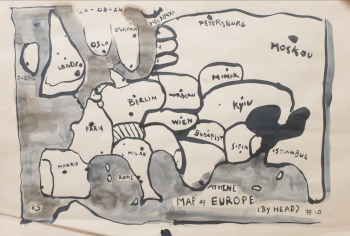 20-08-24
HELSINKI
PETERSBURG
OSLO
MOSKOU
DUBLIN
LONDON
MINSK
BERLIN
WARSCHAU
KYIV
WIEN
PARIS
BUDAPEST
MILAN
SOFIA
ISTANBUL
MADRID
ROME
ATHENE
MAP OF EUROPE
(BY HEAD)
KS
#10